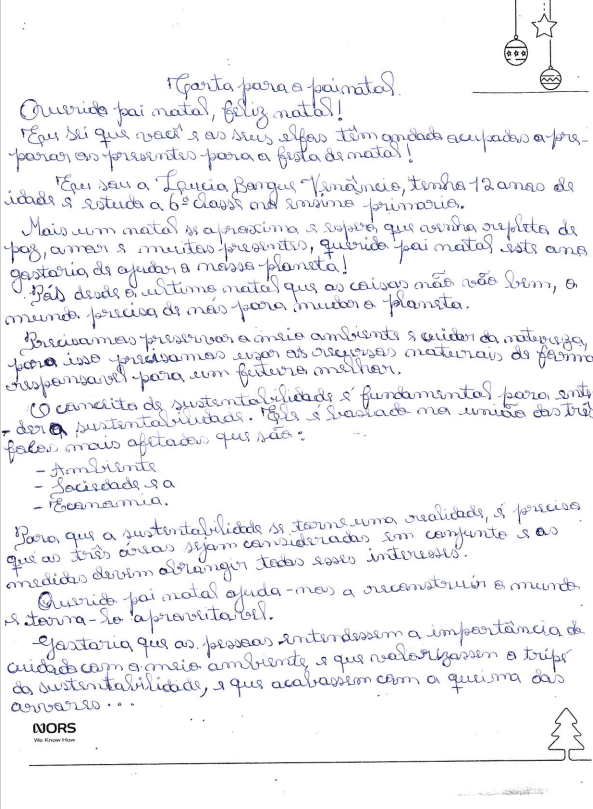 Carta para o pai natal.
Querido pai natal, feliz natal!
Eu sei que você e os seus elfos têm andado ocupados a pre-
parar os presentes para a festa de natal!
Eu sou a Lucia Borges Venâncio, tenho 12 anos de
idade e estudo a 6ª classe no ensino primario.
Mais um natal se aproxima e espero que venha repleto de
paz, amor e muitos presentes, querido pai natal este ano
gostaria de ajudar o nosso planeta!
Pois desde o ultimo natal que as coisas não vão bem, o
mundo precisa de nós para mudar o planeta.
Precisamos preservar o meio ambiente e cuidar da natureza,
para isso precisamos usar os recursos naturais de forma
responsavel para um futuro melhor.
O conceito de sustentabilidade é fundamental para enten
-der a sustentabilidade. Ele é baseado na união dos três
focos mais afetados que são:
- Ambiente
- Sociedade e a
- Economia.
Para, que a sustentabilidade se torne uma realidade, é preciso
que as três áreas sejam consideradas em conjunto e as
medidas devem abrangir todos esses interesses.
Querido pai natal ajuda-nos a reconstruir o mundo
e torna-lo aproveitavel.
Gostaria que as pessoas entendessem a importância do
cuidado com o meio ambiente, e que valorizassem o tripé
da sustentabilidade, e que acabassem com a queima das
arvores...
NORS
We Know How